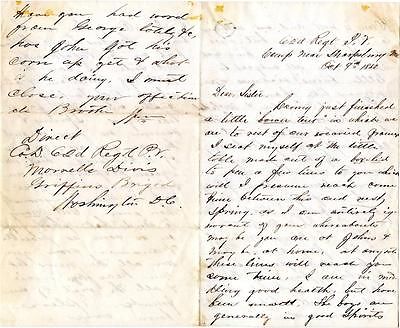 Have you had word
from George lately &
has John got his
corn up yet & what
is he doing. I must
close your affection
ate Brother
Direct
Co D 62d Regt P.V.
Morrells Divis
Griffins Briged
Washington D.C.
62d Regt P.V.
Camp Near Sharpsburg
Oct 9th 1862
Dear Sister
Having just finished
a little bower tent in which we
are to rest of our wearied
I seat myself at the little
table made out of a box lid to
pen a few lines to you
will I presume reach some
time between this and next
spring. as I am entirely ig=
norant of your whereabouts
may be you are at Johns &
may be, at home, at any rate
these lines will reach you
some time. I am in mid
dling good health, but have
been unwell. The boys are
generaly in good spirits